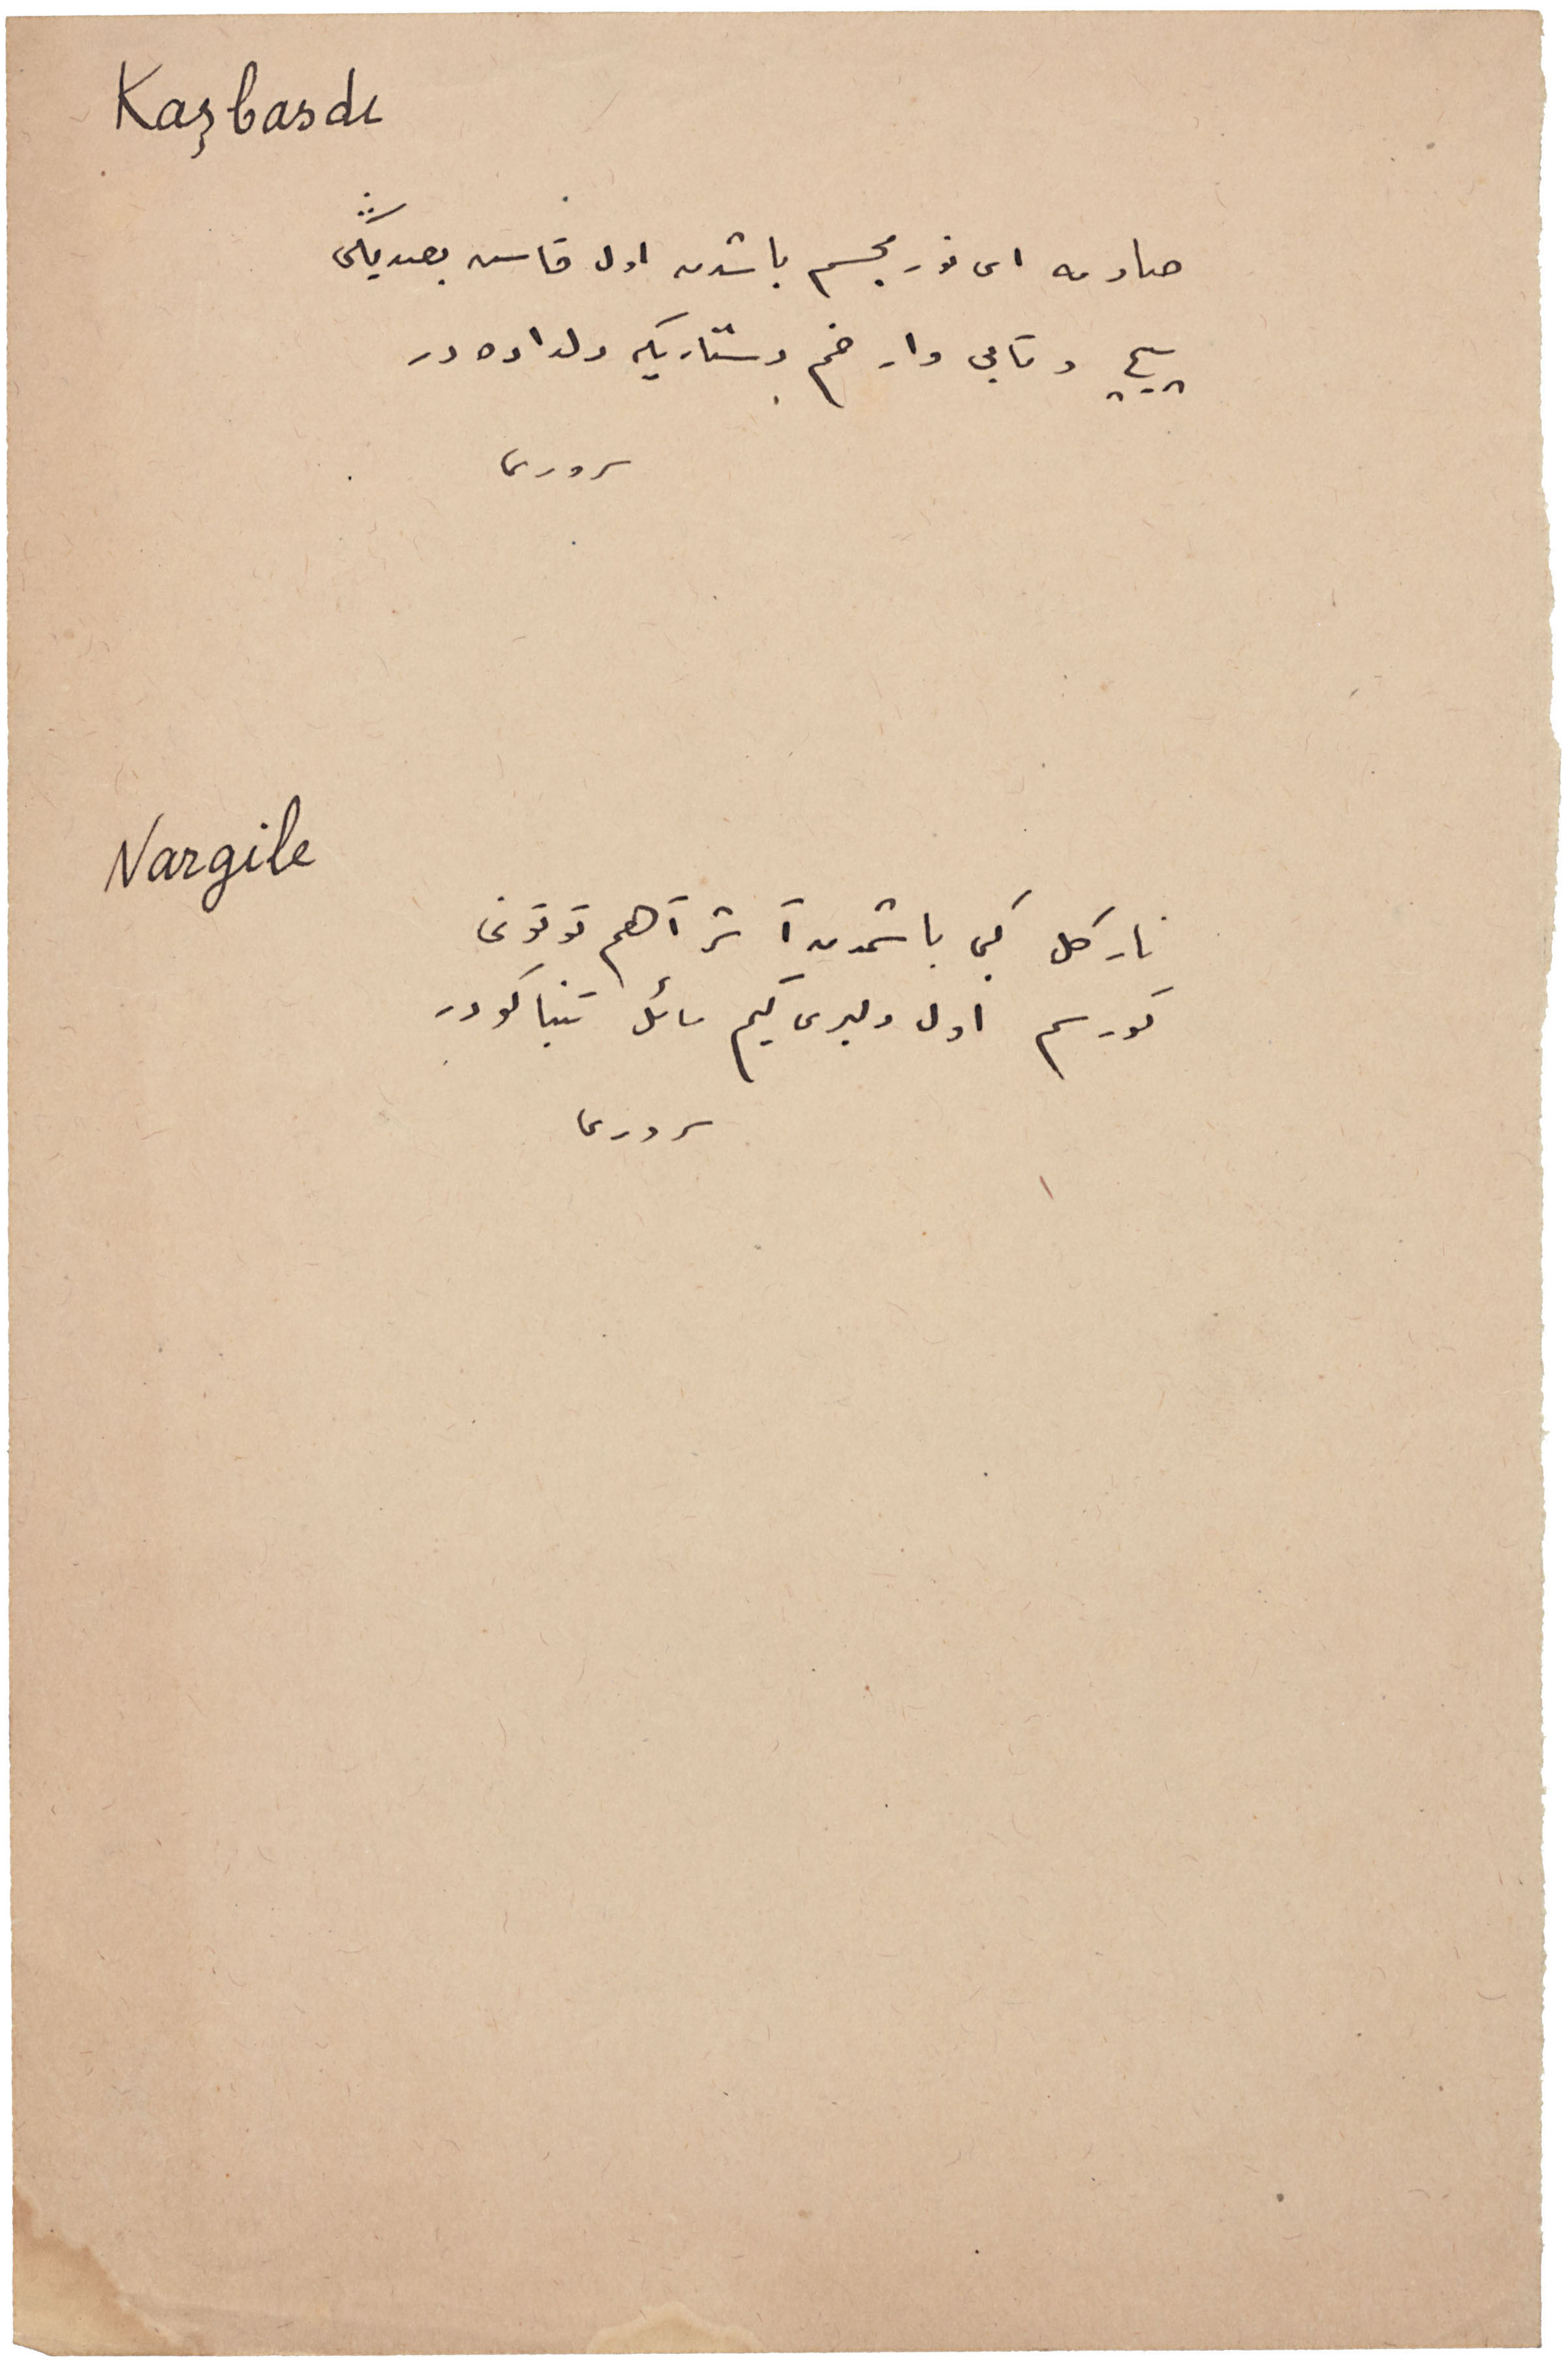 Kaşbasdı
صاومه ای نور مجسم باشدن اول قاش بصدیڭی
پیچ وتابی وار خم دستاریکه دلداده در
سروری
Nargile
نارکل کبی باشمدن آشر آهم توتونی
کورسم اول دلبری کیم مائل تنباکودر
سروری